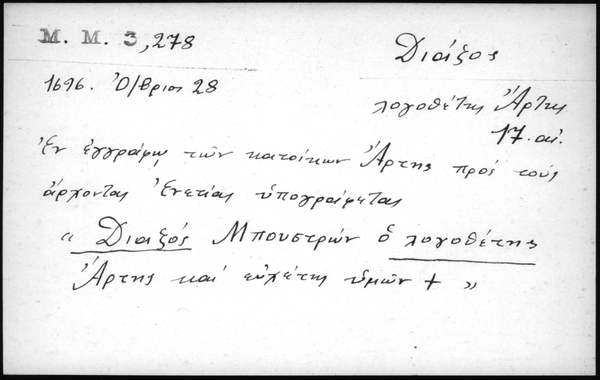 Μ. Μ. 3, 278
Διάξος
1696. Ὀ/βριος 28
λογοθέτης Ἄρτης
17. αἰ.
Ἐν ἐγγράφῳ τῶν κατοίκων Ἄρτης πρός τούς
ἄρχοντας Ἐνετίας ὑπογράφεται
" Διαξός Μπουστρών ὁ λογοθέτης
Ἄρτης καί εὐχέτης ὑμῶν + "